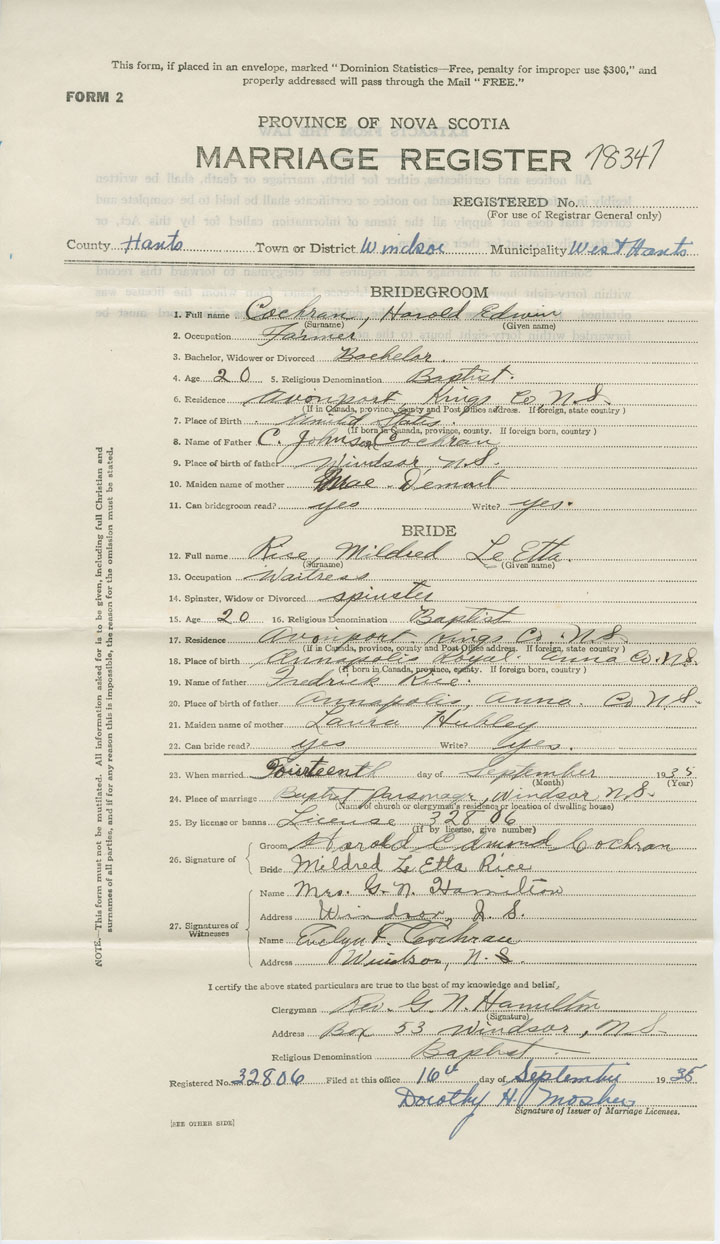 This form, if placed in an envelope, marked "Dominion Statistics—Free, penalty for improper use $300," and
properly addressed will pass through the Mail "FREE."
FORM 2
PROVINCE OF NOVA SCOTIA
MARRIAGE REGISTER 78347
REGISTERED No.
(For use of Registrar General only)
County Hants Town or District Windsor Municipality West Hants
BRIDEGROOM
1. Full name Cochran, Harold Edwin
(Surname) (Given name)
2. Occupation Farmer
3. Bachelor, Widower or Divorced Bachelor.
4. Age 20 5. Religious Denomination Baptist.
6. Residence Avonport, Kings Co N.S.
(If in Canada, province, county and Post Office address. If foreign, state country)
7. Place of Birth United States.
(If born in Canada, province, county. If foreign born, country)
8. Name of Father C. Johnson Cochran
9. Place of birth of father Windsor N.S.
10. Maiden name of mother Mae Demont
11. Can bridegroom read? yes Write? yes.
BRIDE
12. Full name Rice, Mildred Le Etta.
(Surname) (Given name)
13. Occupation Waitress
14. Spinster, Widow or Divorced spinster
15. Age 20 16. Religious Denomination Baptist
17. Residence Avonport. Kings Co. N.S.
(If in Canada, province, county and Post Office address. If foreign, state country)
18. Place of birth Annapolis Royal Anna Co. N.S.
(If born in Canada, province, county. If foreign born, country)
19. Name of father Fredrick Rice.
20. Place of birth of father Annapolis, Anna. Co N.S.
21. Maiden name of mother Laura Hubley
22. Can bride read? yes Write? yes.
23. When married Fourteenth day of September 1935
(Month) (Year)
24. Place of marriage Baptist Parsonage, Windsor N.S.
(Name of church or clergyman's residence or location of dwelling house)
25. By license or banns License 32806
(If by license, give number)
26. Signature of
Groom Harold Edmond Cochran
Bride Mildred Le Etta Rice
27. Signatures of Witnesses
Name Mrs. G. N. Hamilton
Address Windsor, N.S.
Name Evelyn F. Cochran
Address Windsor, N.S.
I certify the above stated particulars are true to the best of my knowledge and belief,
Clergyman Rev. G. N. Hamilton
(Signature)
Address Box 53 Windsor, N.S.
Religious Denomination Baptist
Registered No. 32806 Filed at this office 16th day of September 1935
Dorothy H. Mosher
Signature of Issuer of Marriage Licenses.
[SEE OTHER SIDE]
NOTE.—This form must not be mutilated. All information asked for is to be given, including full Christian and
surnames of all parties, and if for any reason this is impossible, the reason for the omission must be stated.